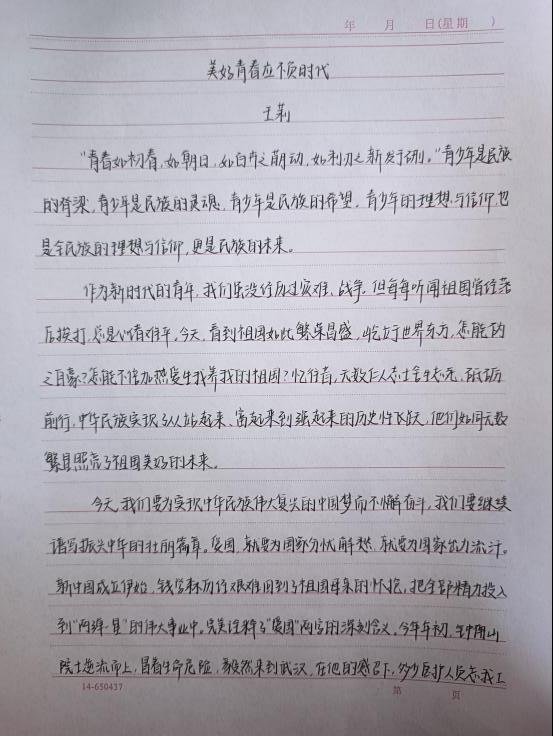 年 月 日(星期 )
美好青春应不负时代
王荆
"青春如初春,如朝日,如百卉之萌动,如利刃之新发于硎。"青少年是民族
的脊梁,青少年是民族的灵魂,青少年是民族的希望,青少年的理想与信仰,也
是全民族的理想与信仰,更是民族的未来。
作为新时代的青年,我们虽没经历过灾难、战争,但每每听闻祖国曾经落
后挨打,总是心有难平。今天,看到祖国如此繁荣昌盛,屹立于世界东方,怎能的
之自豪?怎能不倍加热爱生我养我的祖国?忆往昔,无数仁人志士舍生忘死,砥砺
前行,中华民族实现了从站起来、富起来到强起来的历史性飞跃,他们如同无数
繁星照亮了祖国美好的未来。
今天,我们要为实现中华民族伟大复兴的中国梦而不懈奋斗,我们要继续
谱写振兴中华的壮丽篇章。爱国,就要为国家分忧解愁,就要为国家出力流汗。
新中国成立伊始,钱学森历经艰难回到了祖国母亲的怀抱,把全部精力投入
到"两弹一星"的伟大事业中。完美诠释了"爱国"两字的深刻含义,今年年初,钟南山
院士逆流而上,冒着生命危险,毅然来到武汉,在他的感召下,多少医护人员忘我工
14-650437
第 页